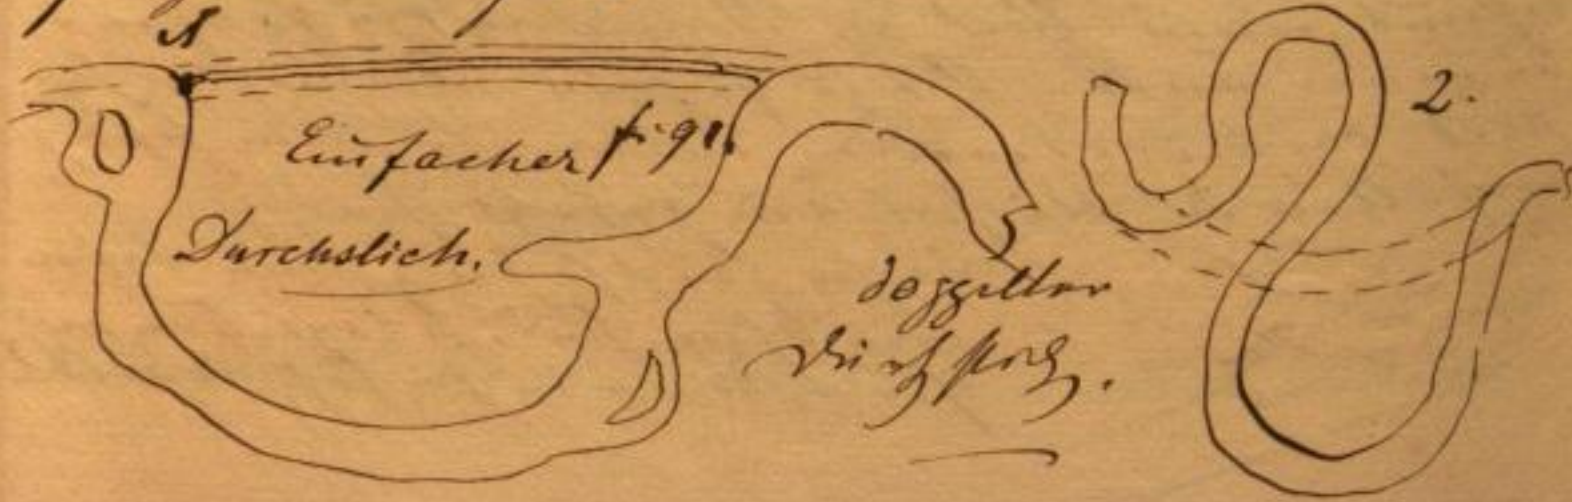 A
Einfacher fig 1.
Durchstich.
2.
doppelter
Durchstich.